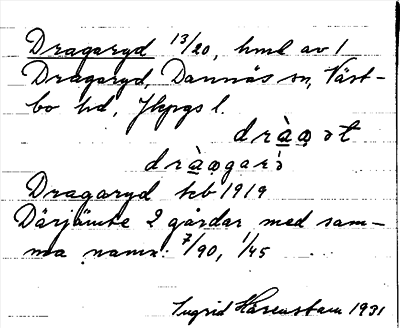 Dragaryd 13/20, hml av 1
Dragaryd, Dannäs sn, Väst-
bo hd, Jkpgs l.
Dragaryd tcb 1919
Därjämte 2 gårdar med sam-
ma namn: 7/90, 1/45
Ingrid Härenstam 1931